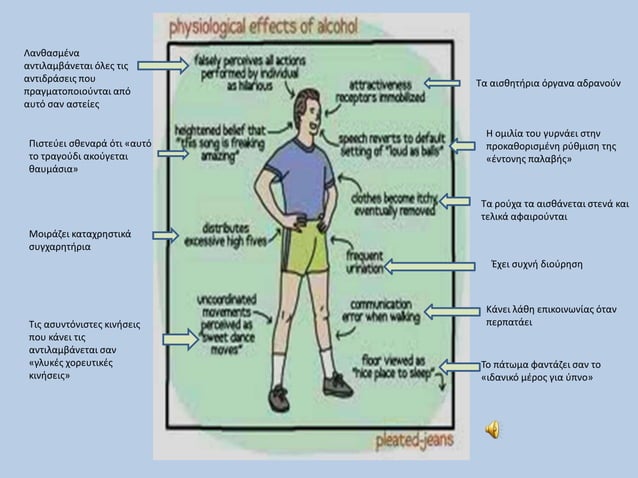 physiological effects of alcohol
Λανθασμένα
αντιλαμβάνεται όλες τις
αντιδράσεις που
πραγματοποιούνται από
αυτό σαν αστείες
Πιστεύει σθεναρά ότι «αυτό
το τραγούδι ακούγεται
θαυμάσια»
Μοιράζει καταχρηστικά
συγχαρητήρια
Τις ασυντόνιστες κινήσεις
που κάνει τις
αντιλαμβάνεται σαν
«γλυκές χορευτικές
κινήσεις»
falsely perceives all actions
performed by individual
as hilarious
heightened belief that
"this song is freaking
amazing"
distributes
excessive high fives
uncoordinated
movements
perceived as
"sweet dance
moves"
attractiveness
receptors immobilized
speech reverts to default
setting of "loud as balls"
clothes become itchy,
eventually removed
frequent
urination
communication
error when walking
floor viewed as
"nice place to sleep"
Τα αισθητήρια όργανα αδρανούν
Η ομιλία του γυρνάει στην
προκαθορισμένη ρύθμιση της
«έντονης παλαβής»
Τα ρούχα τα αισθάνεται στενά και
τελικά αφαιρούνται
Έχει συχνή διούρηση
Κάνει λάθη επικοινωνίας όταν
περπατάει
Το πάτωμα φαντάζει σαν το
«ιδανικό μέρος για ύπνο»
pleated-jeans